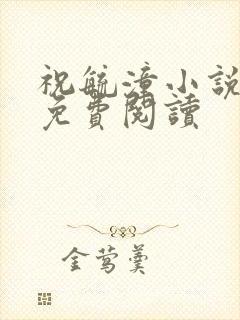 祝毓漳小說
免費閱讀
金鶯羹